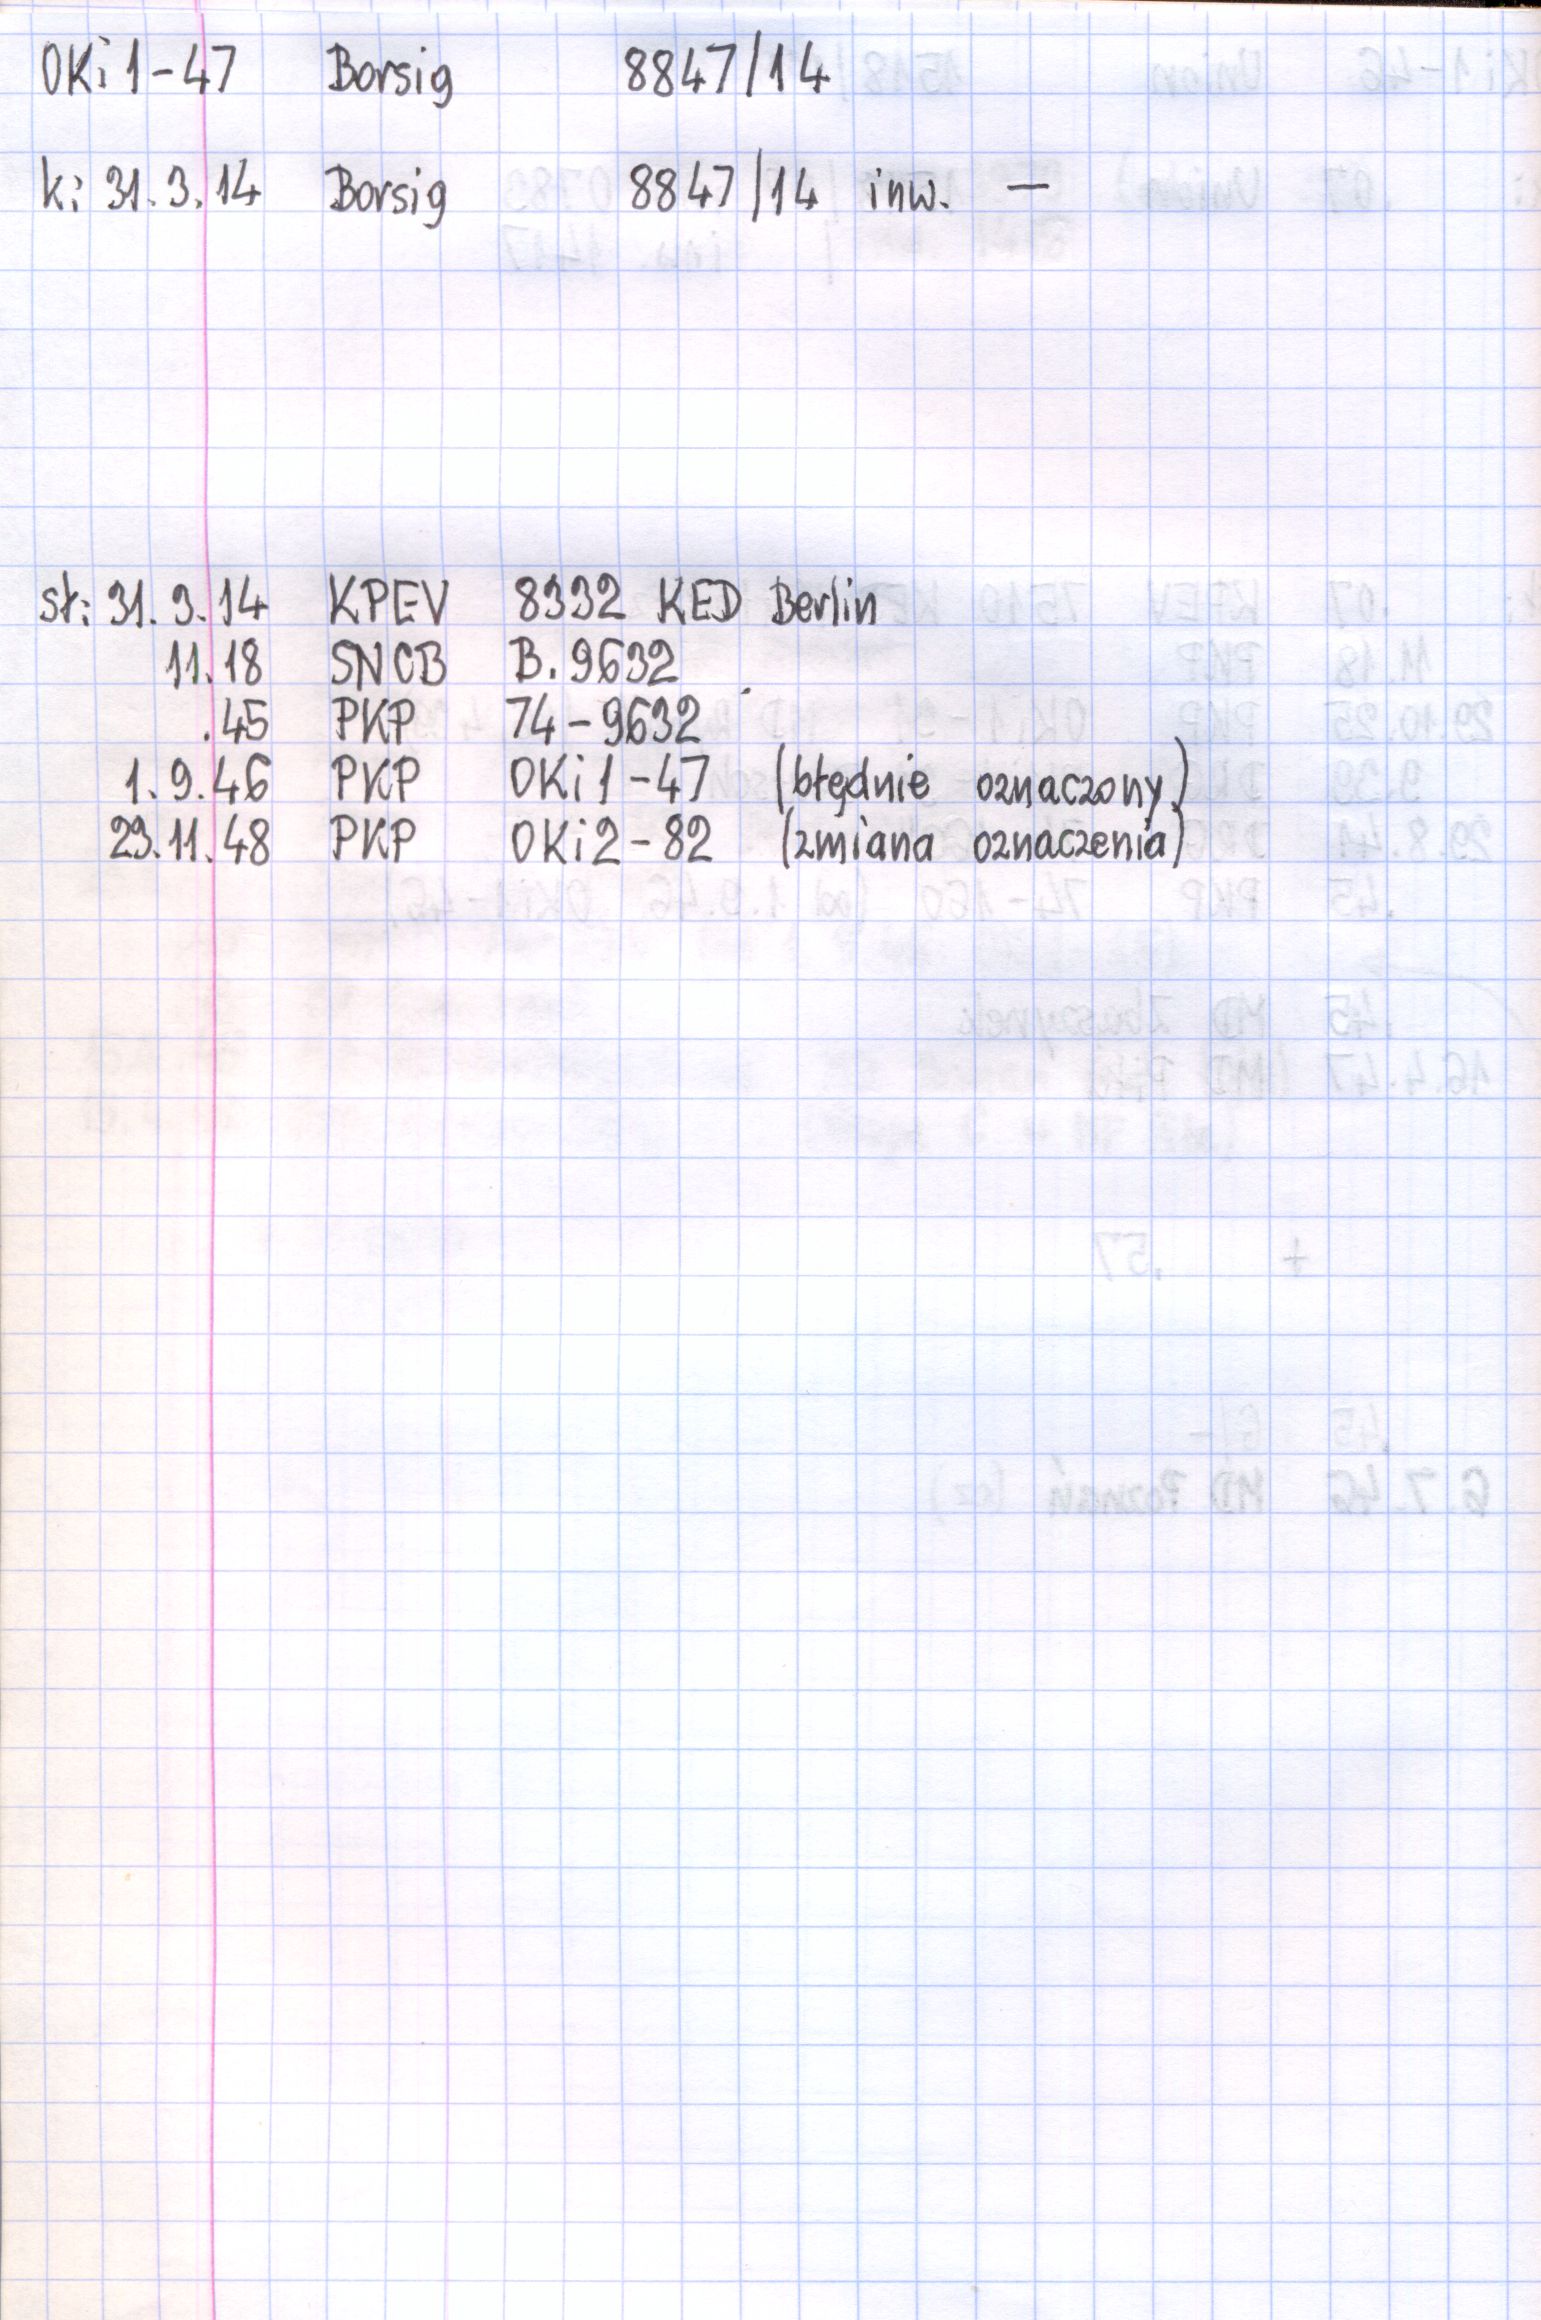 OKi1-47 Borsig 8847/14
k: 31.3.14 Borsig 8847/14 inw. —
st: 31.3.14 KPEV 8332 KED Berlin
11.18 SNCB B.9632
.45 PKP 74-9632
1.9.46 PKP OKi1-47 (błędnie oznaczony)
29.11.48 PKP OKi2-82 (zmiana oznaczenia)